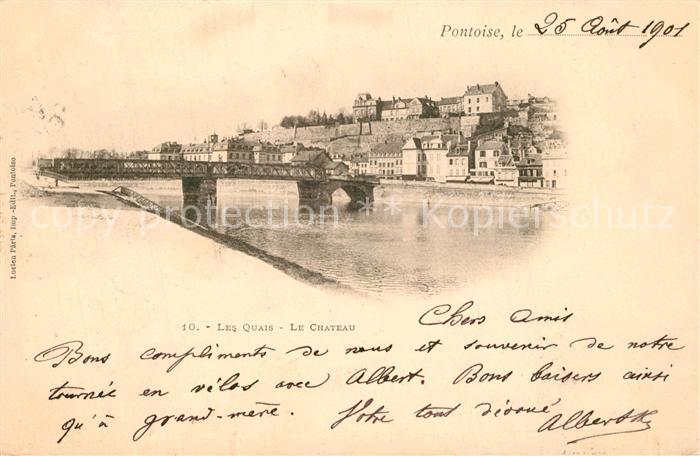 Pontoise, le 25 Août 1901
Lucien Pâris, Imp.-Edit., Pontoise
copyright protection by www.ansichtskarten-center.de
10. - Les Quais - Le Chateau
Chers amis
Bons compliments de nous et souvenir de notre
tournée en vélos avec Albert. Bons baisers ainsi
qu'à grand-mère. Votre tout dévoué